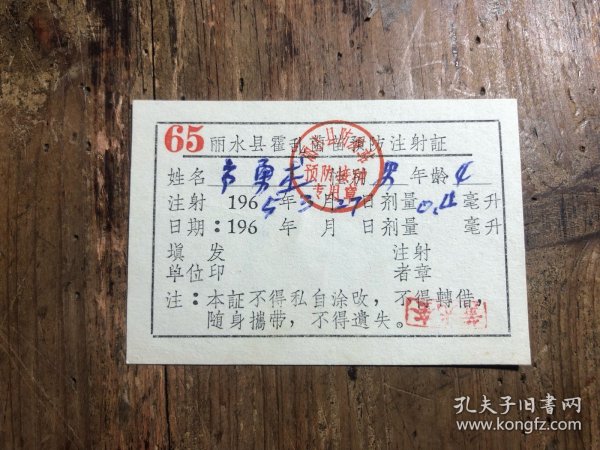 65 丽水县霍乱菌苗预防注射証
姓名 勇 性别 男 年龄 4
注射 1965年3月27日剂量0.4毫升
日期：196 年 月 日剂量 毫升
填发 注射
单位印 者章
预防接种
专用章
注：本証不得私自涂改，不得轉借，
随身攜带，不得遺失。
孔夫子旧书网
www.kongfz.com